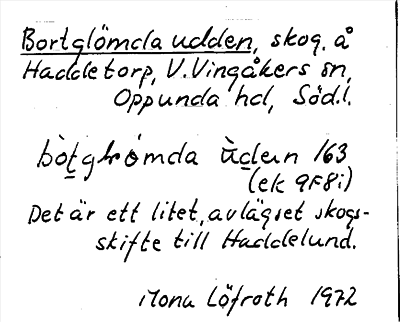 Bortglömda udden, skog. å
Haddetorp, V. Vingåkers sn,
Oppunda hd, Söd.l.
bòtglömda ùden 163
(ek 9F8i)
Det är ett litet, avlägset skogs-
skifte till Haddelund.
Mona Löfroth 1972